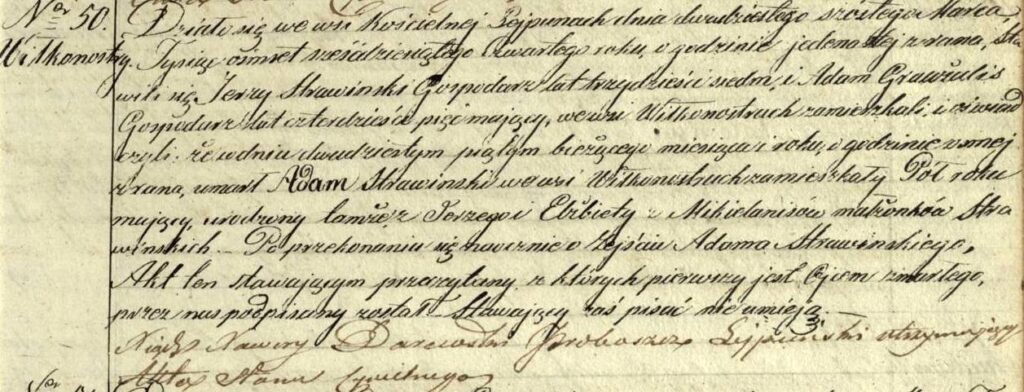 Nr 50.
Wilkonostry.
Działo się we wsi Kościelnej Lejpunach dnia dwudziestego szóstego Marca,
Tysiąc ośmset sześćdziesiątego Czwartego roku, o godzinie jedenastej z rana, Sta
wili się, Jerzy Strawiński Gospodarz lat trzydzieści siedm, i Adam Grawźulis
Gospodarz lat czterdzieście pięć mający, we wsi Wilkonostrach zamieszkali, i oświad
czyli, że w dniu dwudziestym piątym bieżącego miesiąca i roku, o godzinie osmej
z rana, umarł Adam Strawiński we wsi Wilkonostrach zamieszkały Pół roku
mający, urodzony tamże, z Jerzego i Elżbiety z Mikielanisów małżonków Stra
wińskich. Po przekonaniu się naocznie o Zejściu Adama Strawińskiego,
Akt ten stawającym przeczytany z których pierwszy jest Ojcem zmarłego,
przez nas podpisany został Stawający zaś pisać nie umieją.
Xiądz Xawery Darewski Proboszcz Lejpuński utrzymujący
Akta Stanu Cywilnego